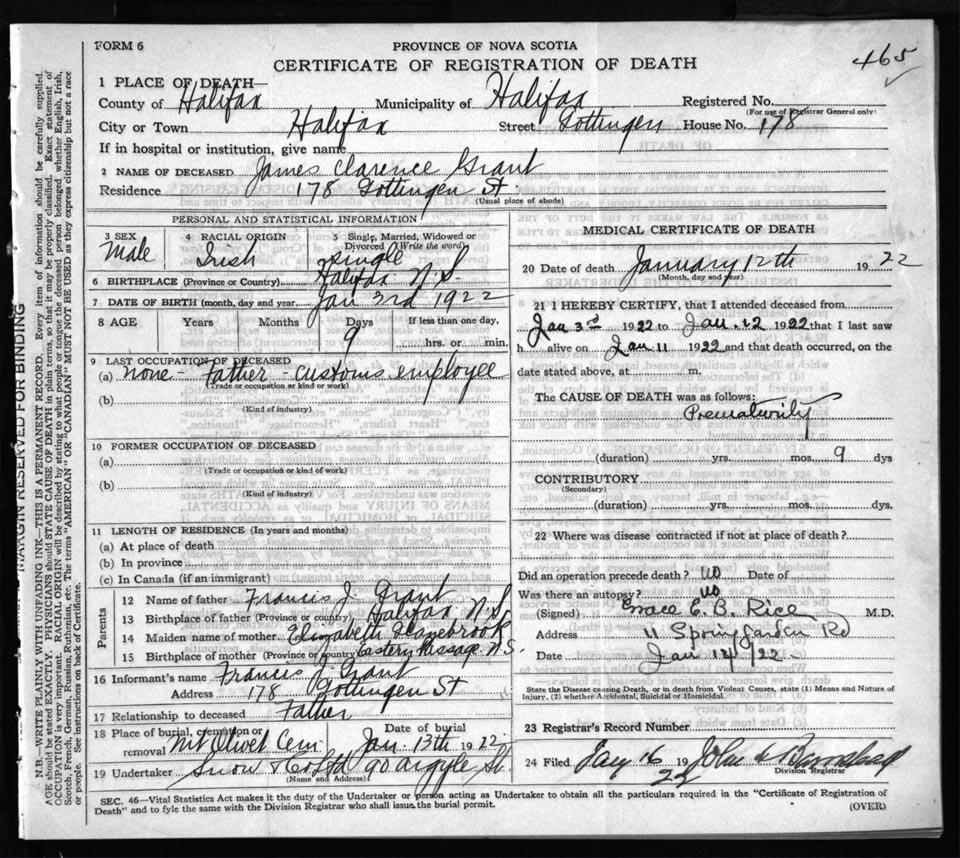 FORM 6
PROVINCE OF NOVA SCOTIA
465
CERTIFICATE OF REGISTRATION OF DEATH
1 PLACE OF DEATH—
County of Halifax Municipality of Halifax Registered No.
(For use of Registrar General only)
City or Town Halifax Street Gottingen House No. 178
If in hospital or institution, give name
2 NAME OF DECEASED James Clarence Grant
Residence 178 Gottingen St.
(Usual place of abode)
PERSONAL AND STATISTICAL INFORMATION
3 SEX 4 RACIAL ORIGIN 5 Single, Married, Widowed or Divorced (Write the word)
Male Irish Single
6 BIRTHPLACE (Province or Country) Halifax N.S.
7 DATE OF BIRTH (month, day and year) Jan 3rd 1922
8 AGE Years Months Days If less than one day,
9 hrs. or min.
9 LAST OCCUPATION OF DECEASED
(a) none - Father - customs employee
(Trade or occupation or kind of work)
(b)
(Kind of industry)
10 FORMER OCCUPATION OF DECEASED
(a)
(Trade or occupation or kind of work)
(b)
(Kind of industry)
11 LENGTH OF RESIDENCE (In years and months)
(a) At place of death
(b) In province
(c) In Canada (if an immigrant)
Parents
12 Name of father Francis J. Grant
13 Birthplace of father (Province or Country) Halifax N.S.
14 Maiden name of mother Elizabeth
15 Birthplace of mother (Province or Country) Eastern Passage N.S.
16 Informant's name Francis J. Grant
Address 178 Gottingen St
17 Relationship to deceased Father
18 Place of burial, cremation or removal Mt Olivet Cem Date of burial Jan. 13th 1922
19 Undertaker Snow & Co Ltd 90 Argyle St
(Name and Address)
MEDICAL CERTIFICATE OF DEATH
20 Date of death January 12th 1922
(Month, day and year)
21 I HEREBY CERTIFY, that I attended deceased from
Jan 3rd 1922 to Jan. 12 1922 that I last saw
h alive on Jan 11 1922 and that death occurred, on the
date stated above, at m.
The CAUSE OF DEATH was as follows:
Prematurity
(duration) yrs. mos. 9 dys
CONTRIBUTORY
(Secondary)
(duration) yrs. mos. dys.
22 Where was disease contracted if not at place of death?
Did an operation precede death? no Date of
Was there an autopsy? no
(Signed) Grace E. B. Rice M.D.
Address 11 Spring Garden Rd
Date Jan 12/22
State the Disease causing Death, or in death from Violent Causes, state (1) Means and Nature of
Injury, (2) whether Accidental, Suicidal or Homicidal.
23 Registrar's Record Number
24 Filed Jany 16 1922 John
Division Registrar
SEC. 46—Vital Statistics Act makes it the duty of the Undertaker or person acting as Undertaker to obtain all the particulars required in the "Certificate of Registration of
Death" and to fyle the same with the Division Registrar who shall issue the burial permit. (OVER)
MARGIN RESERVED FOR BINDING
N.B.—WRITE PLAINLY WITH UNFADING INK—THIS IS A PERMANENT RECORD. Every item of information should be carefully supplied.
AGE should be stated EXACTLY. PHYSICIANS should STATE CAUSE OF DEATH in plain terms, so that it may be properly classified. Exact statement of
OCCUPATION is very important. RACIAL ORIGIN will be described by stating to what people or tongue the deceased person belonged whether English, Irish,
Scotch, French, German, Russian, Ruthenian, etc. The terms "AMERICAN" or "CANADIAN" MUST NOT BE USED as they express citizenship but not a race
or people. See instructions on back of Certificate.